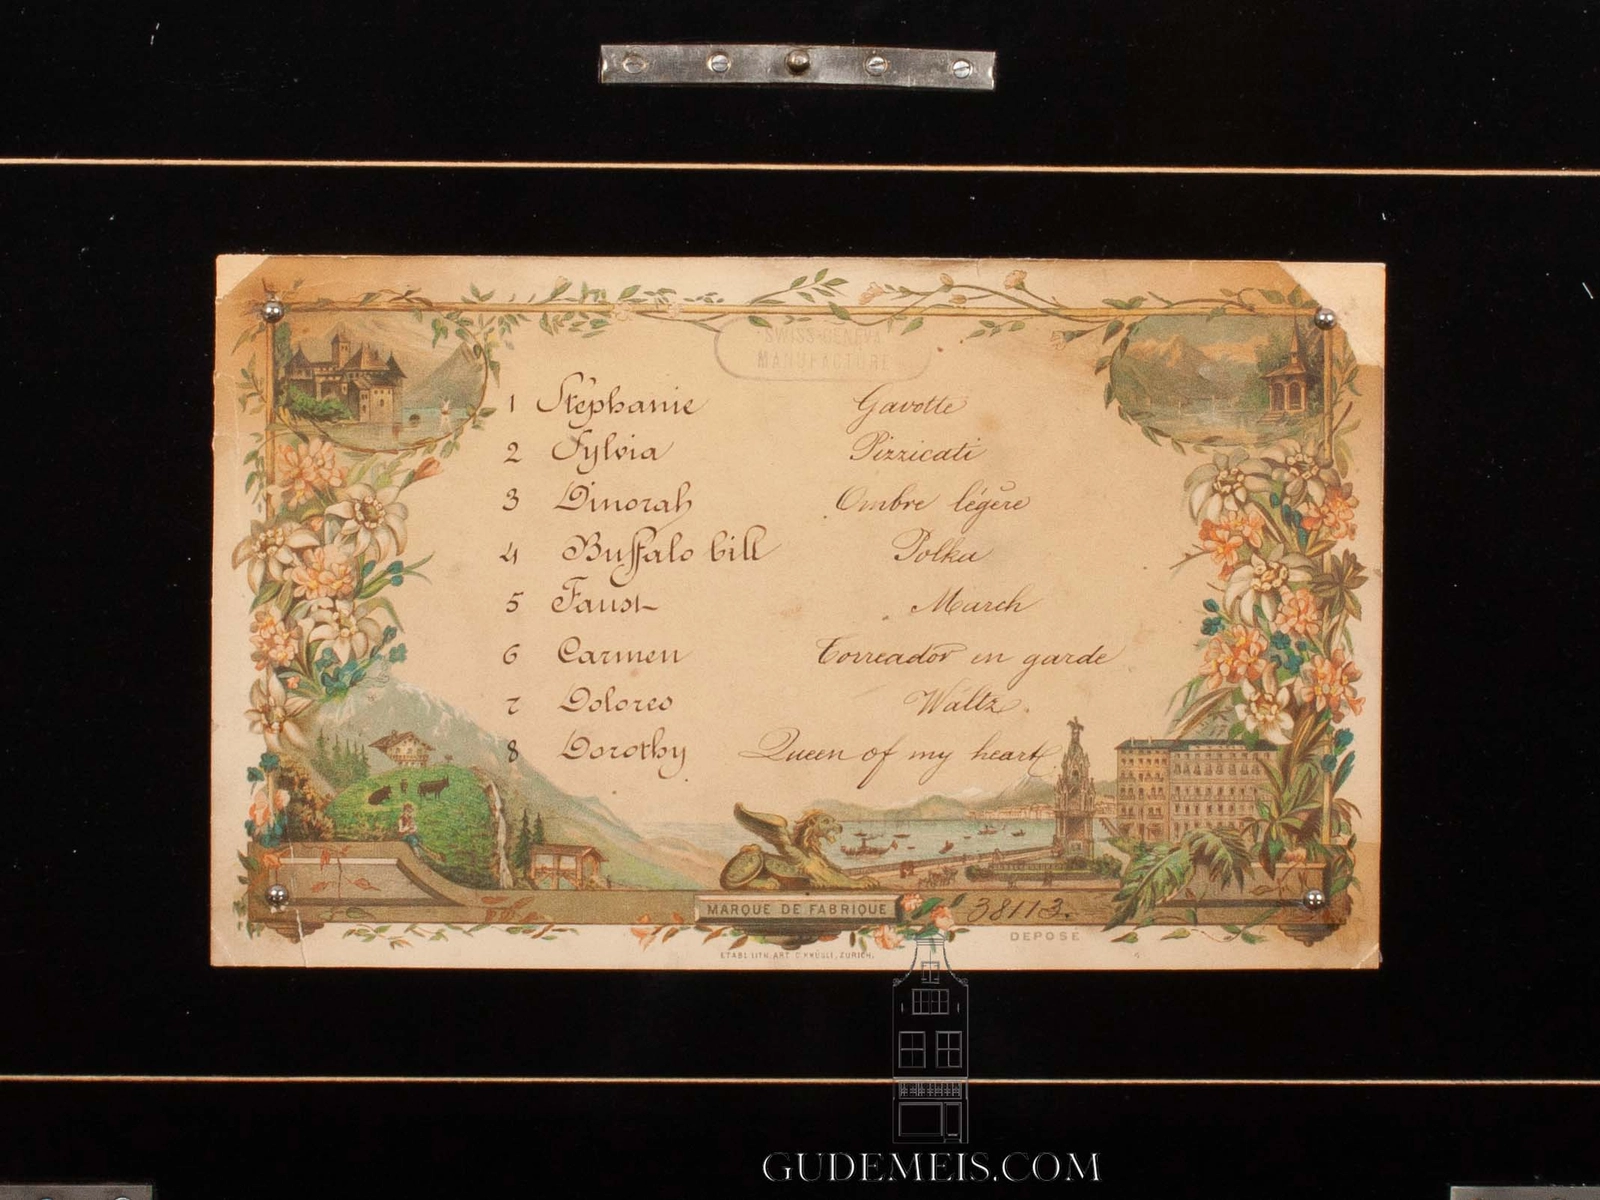 SWISS-GENEVA
MANUFACTURE
1 Stéphanie Gavotte
2 Sylvia Pizzicati
3 Dinorah Ombre légère
4 Buffalo bill Polka
5 Faust March
6 Carmen Torreador en garde
7 Dolores Waltz
8 Dorothy Queen of my heart
MARQUE DE FABRIQUE 38113.
DEPOSÉ
ETABL. LITH. ART. C. KNÜSLI, ZURICH.
GUDEMEIS.COM